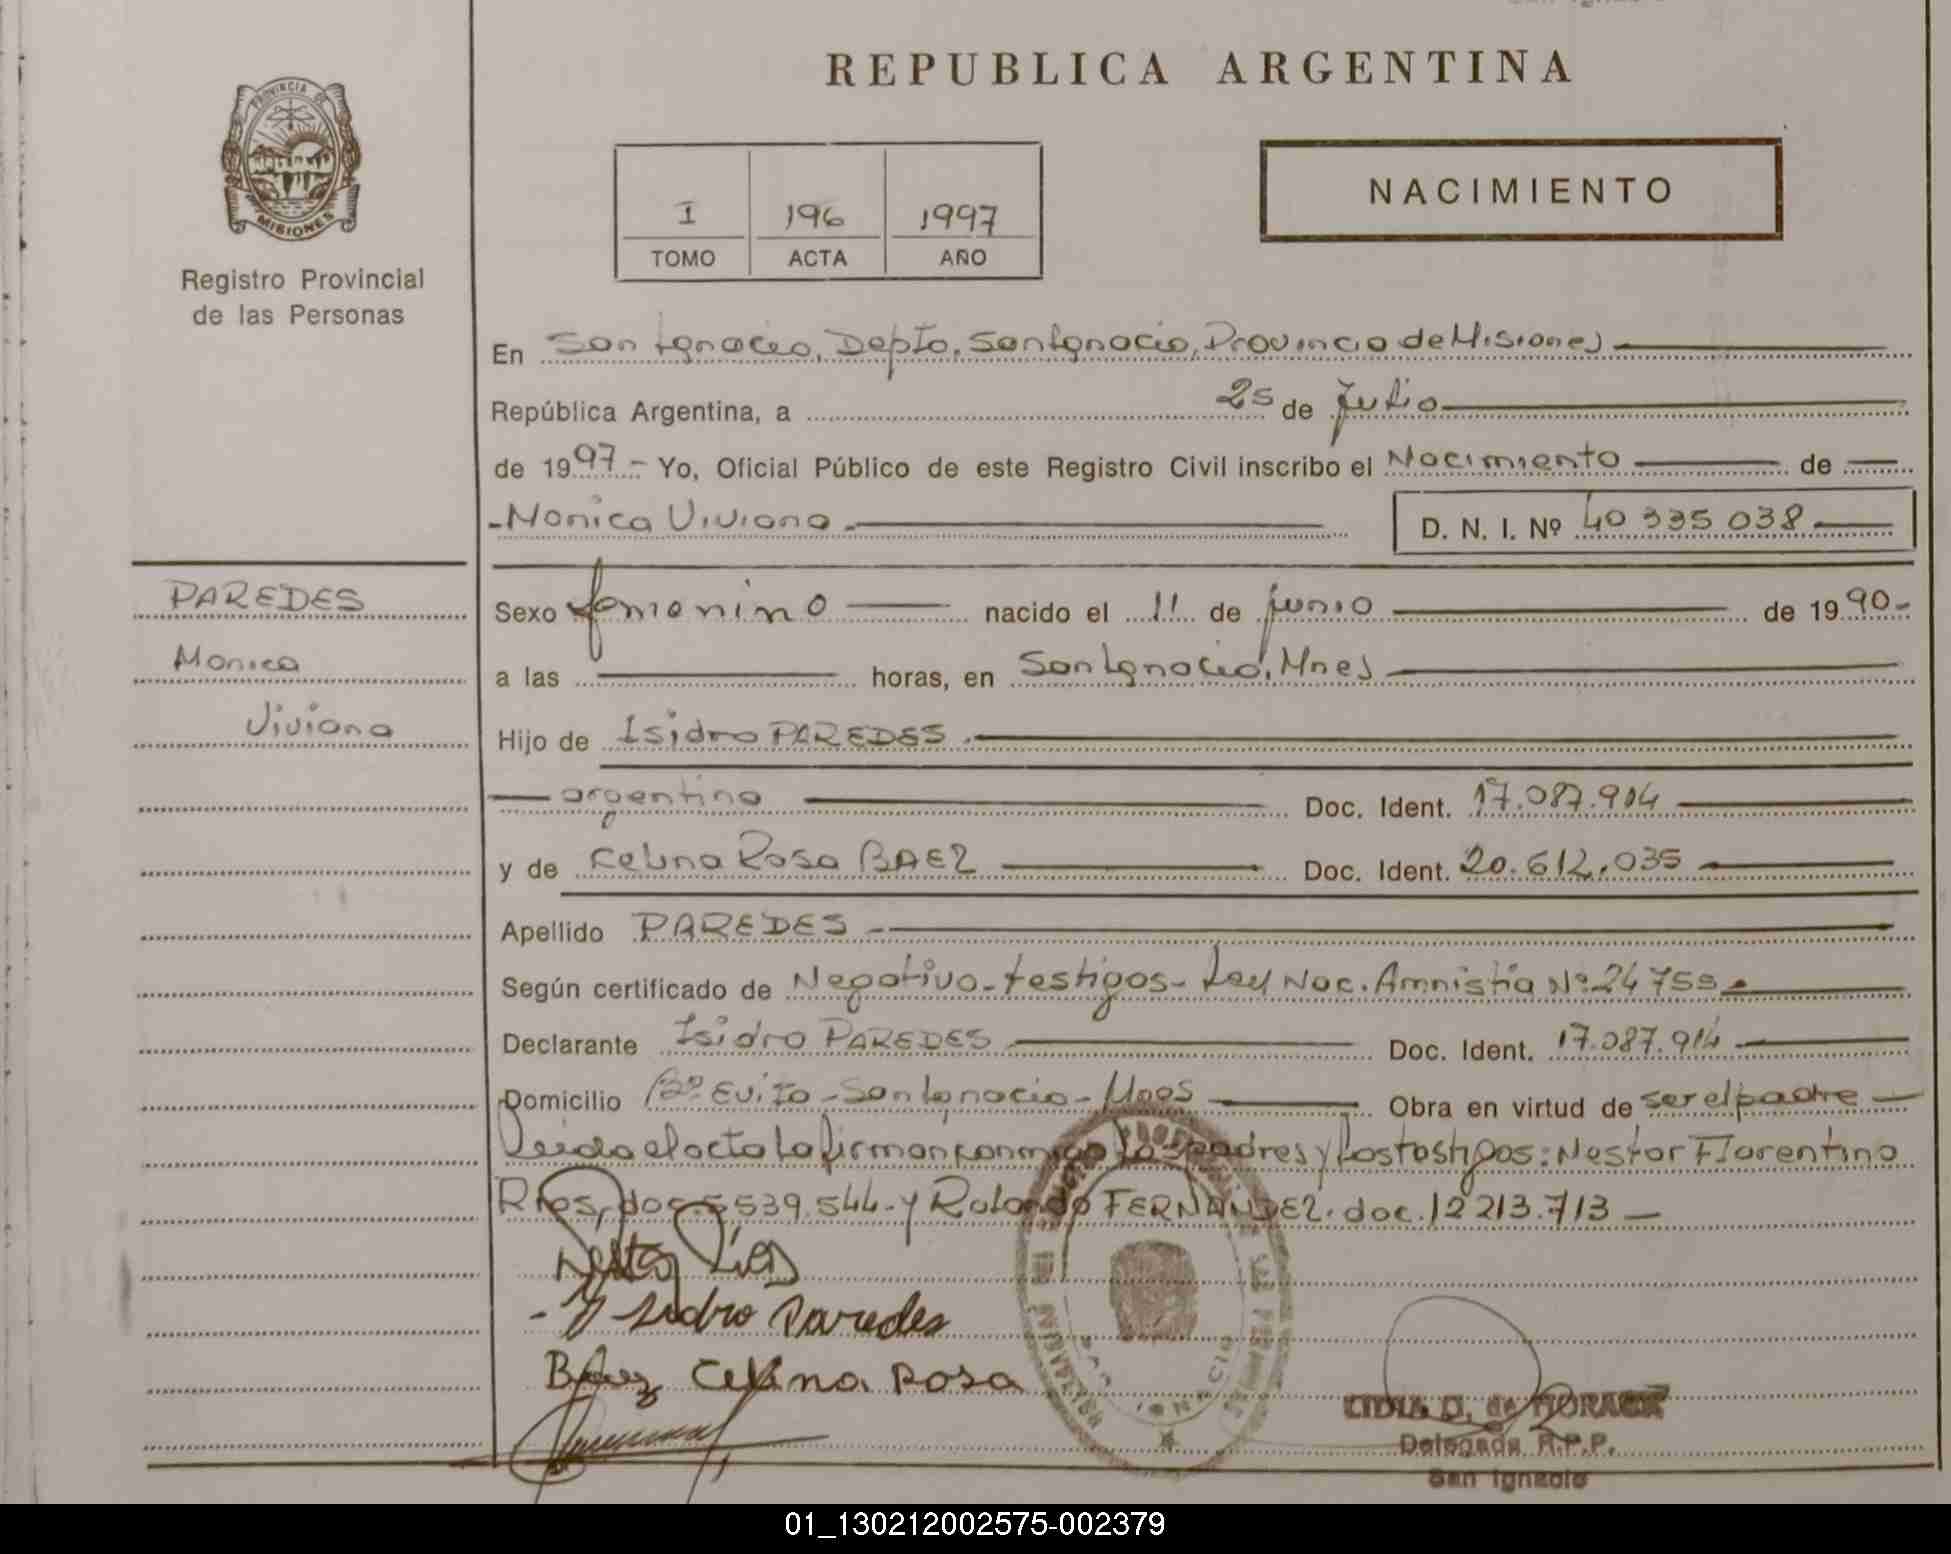 REPUBLICA ARGENTINA
PROVINCIA DE MISIONES
Registro Provincial
de las Personas
I 196 1997
TOMO ACTA AÑO
NACIMIENTO
En San Ignacio, Depto. San Ignacio, Provincia de Misiones
República Argentina, a 25 de Julio
de 1997.- Yo, Oficial Público de este Registro Civil inscribo el Nacimiento de
-Monica Viviana.-
D. N. I. Nº 40 335 038
PAREDES
Monica
Viviana
Sexo femenino nacido el 11 de junio de 1990-
a las horas, en San Ignacio, Mnes
Hijo de Isidro PAREDES.
argentino Doc. Ident. 17.087.914
y de Celina Rosa BAEZ Doc. Ident. 20.612.035
Apellido PAREDES
Según certificado de Negativo-testigos-Ley Nac. Amnistía Nº 24755
Declarante Isidro PAREDES Doc. Ident. 17.087.914
Domicilio Bº Evita-San Ignacio-Mnes Obra en virtud de ser el padre
Leida el acta la firman conmigo los padres y los testigos: Nestor Florentino
Rios, doc. 5539.544-y Rolando FERNANDEZ. doc. 12213.713
Nestor Rios
Isidro Paredes
Baez Celina Rosa
SAN IGNACIO
LIDIA D. de MORAEZ
Delegada R.P.P.
San Ignacio
01_130212002575-002379